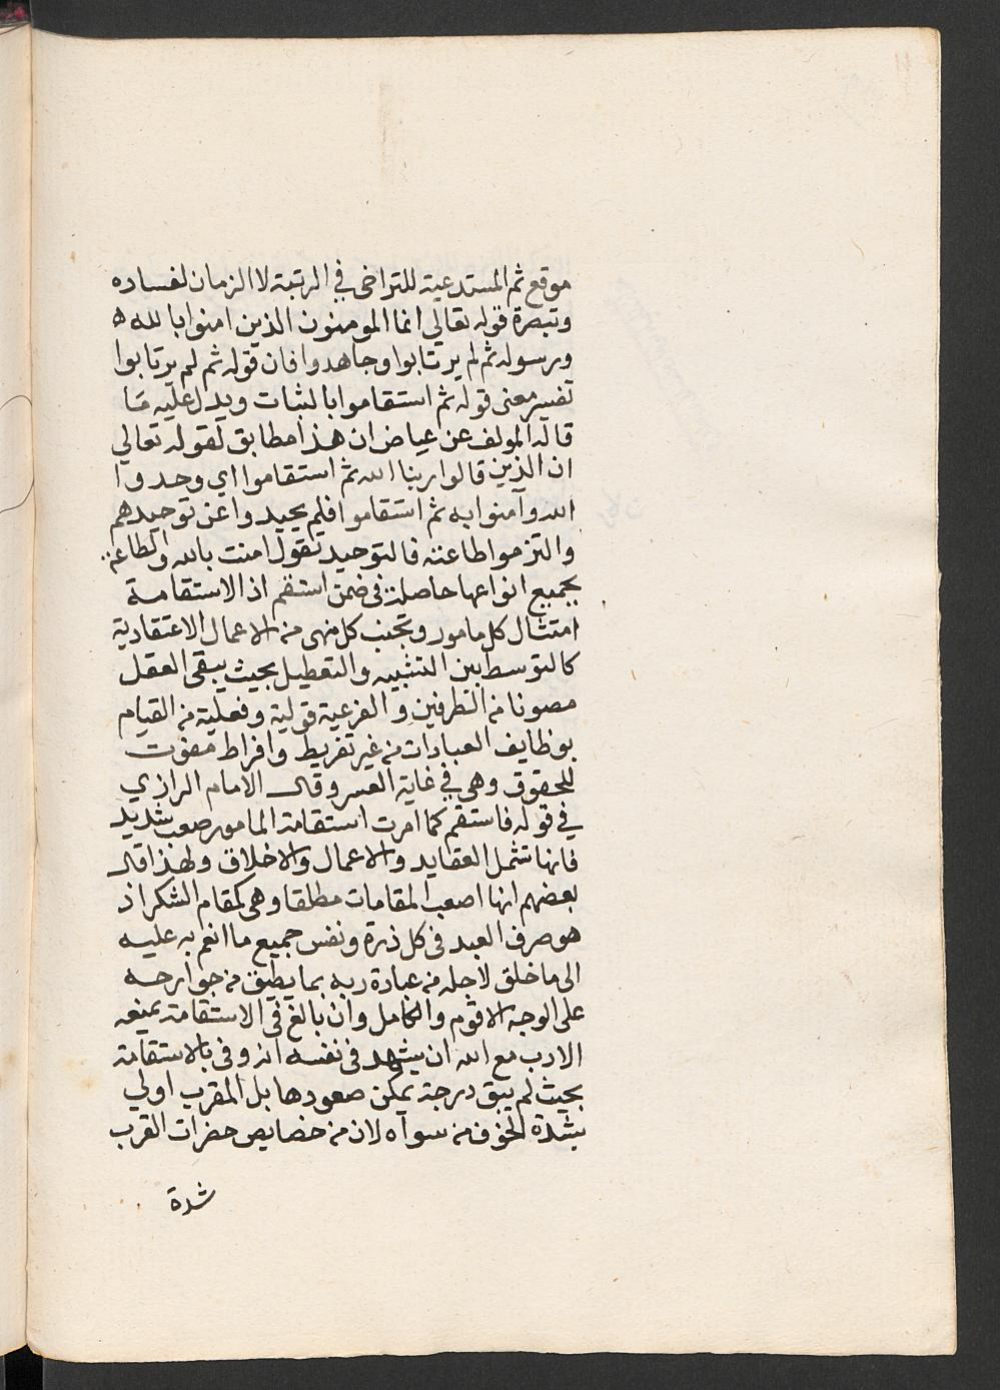 موقع ثم المستدعية للتراخى في الرتبة لا الزمان لفساده
وتبصرة قوله تعالي انما المومنون الذين امنوا بالله
ورسوله ثم لم يرتابوا وجاهدوا فان قوله ثم لم يرتابوا
تفسير معنى قوله ثم استقاموا بالثبات ويدل عليه ما
قاله المولف عن عياض ان هذا مطابق لقوله تعالي
ان الذين قالوا ربنا الله ثم استقاموا اي وحدوا
الله وآمنوا به ثم استقاموا فلم يحيدوا عن توحيدهم
والتزموا طاعته فالتوحيد تقول امنت بالله والطاعة
بجميع انواعها حاصلة في ضمن استقم اذ الاستقامة
امتثال كل مامور وتجنب كل منهى من الاعمال الاعتقادية
كالتوسط بين التشبيه والتعطيل بحيث يبقى العقل
مصونا من الطرفين والفرعية قولية وفعلية من القيام
بوظايف العبادات من غير تفريط وافراط مفوت
للحقوق وهي في غاية العسر وقال الامام الرازي
في قوله فاستقم كما امرت استقامة المامور صعب شديد
فانها تشمل العقايد والاعمال والاخلاق ولهذا قال
بعضهم انها اصعب المقامات مطلقا وهي كمقام الشكر اذ
هو صرف العبد في كل ذرة ونفس جميع ما انعم به عليه
الى ما خلق لاجله من عبادة ربه بما يطيق من جوارحه
على الوجه الاقوم والكامل وان بالغ في الاستقامة يمنعه
الادب مع الله ان يشهد في نفسه انه وفى بالاستقامة
بحيث لم يبق درجة يمكن صعودها بل المقرب اولي
بشدة الخوف من سواه لان من خصايص حضرات القرب
شدة